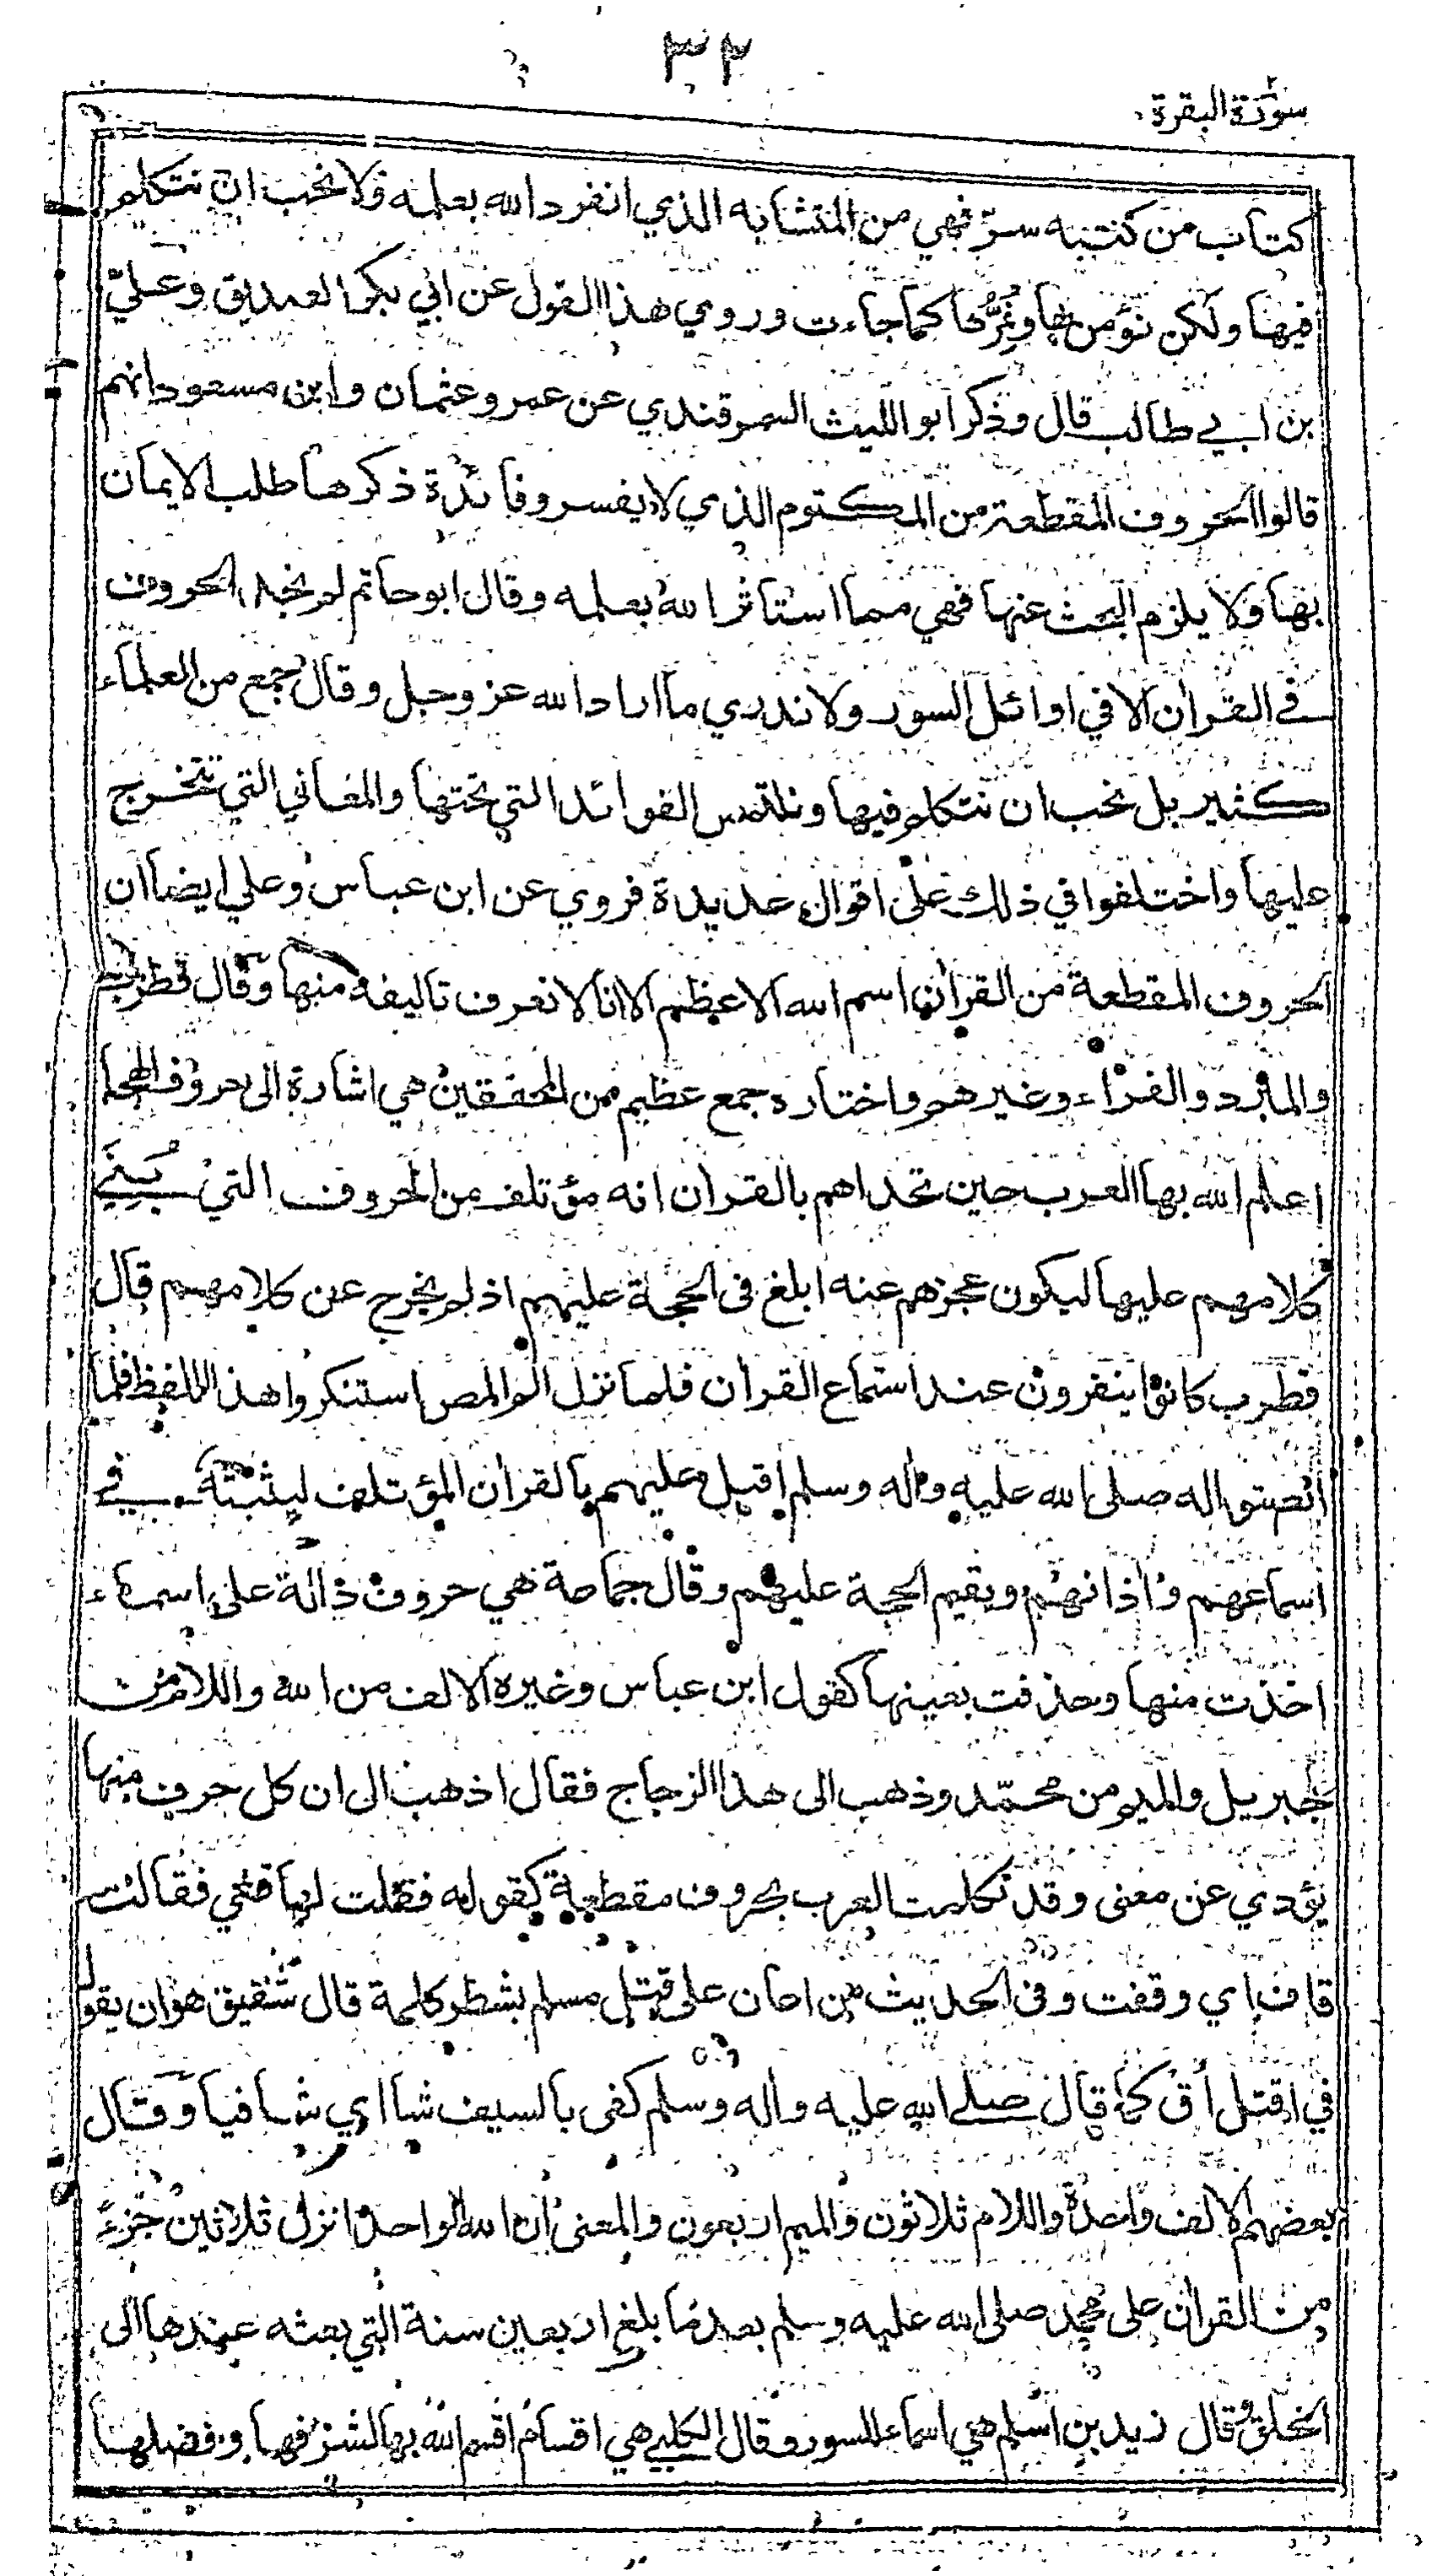 ٣٣
سورة البقرة
كتاب من كتبه سرّ فهي من المتشابه الذي انفرد الله بعلمه ولا نحب ان نتكلم
فيها ولكن نؤمن بها ونُمِرُّها كما جاءت وروي هذا القول عن ابي بكر الصديق وعليّ
بن ابي طالب قال وذكر ابو الليث السمرقندي عن عمر وعثمان وابن مسعود انهم
قالوا الحروف المقطعة من المكتوم الذي لا يفسر وفائدة ذكرها طلب الايمان
بها ولا يلزم البحث عنها فهي مما استاثر الله بعلمه وقال ابو حاتم لم نجد الحروف
في القرآن الا في اوائل السور ولا ندري ما اراد الله عز وجل وقال جمع من العلماء
كثير بل نحب ان نتكلم فيها ونلتمس الفوائد التي تحتها والمعاني التي تتخرج
عليها واختلفوا في ذلك على اقوال عديدة فروي عن ابن عباس وعلي ايضا ان
الحروف المقطعة من القرآن اسم الله الاعظم الا انا لا نعرف تاليفه منها وقال قطرب
والمبرد والفراء وغيرهم واختاره جمع عظيم من المحققين هي اشارة الى حروف الهجا
اعلم الله بها العرب حين تحداهم بالقرآن انه مؤتلف من الحروف التي بُنِيَ
كلامهم عليها ليكون عجزهم عنه ابلغ في الحجة عليهم اذ لم يخرج عن كلامهم قال
قطرب كانوا ينفرون عند استماع القرآن فلما نزل الم المص استنكروا هذا اللفظ فلما
انصتوا له صلى الله عليه وآله وسلم اقبل عليهم بالقرآن المؤتلف ليثبته في
اسماعهم وآذانهم ويقيم الحجة عليهم وقال جماعة هي حروف دالة على اسماء
اخذت منها وحذفت بقيتها كقول ابن عباس وغيره الالف من الله واللام من
جبريل والميم من محمّد وذهب الى هذا الزجاج فقال اذهب الى ان كل حرف منها
يؤدي عن معنى وقد تكلمت العرب بحروف مقطعة كقوله فقلت لها قفي فقالت
قاف اي وقفت وفي الحديث من اعان على قتل مسلم بشطر كلمة قال شقيق هو ان يقول
في اقتل أق كما قال صلى الله عليه وآله وسلم كفى بالسيف شا اي شافيا وقال
بعضهم الالف واحدة واللام ثلاثون والميم اربعون والمعنى ان الله الواحد انزل ثلاثين جزءً
من القرآن على محمد صلى الله عليه وسلم بعد ما بلغ اربعين سنة التي بعثه عندها الى
الخلق وقال زيد بن اسلم هي اسماء للسور وقال الكلبي هي اقسام اقسم الله بها لشرفها وفضلها